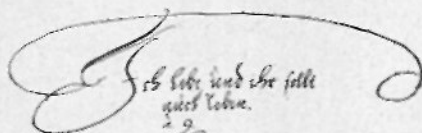 Ich lebe und ihr sollt
auch leben.